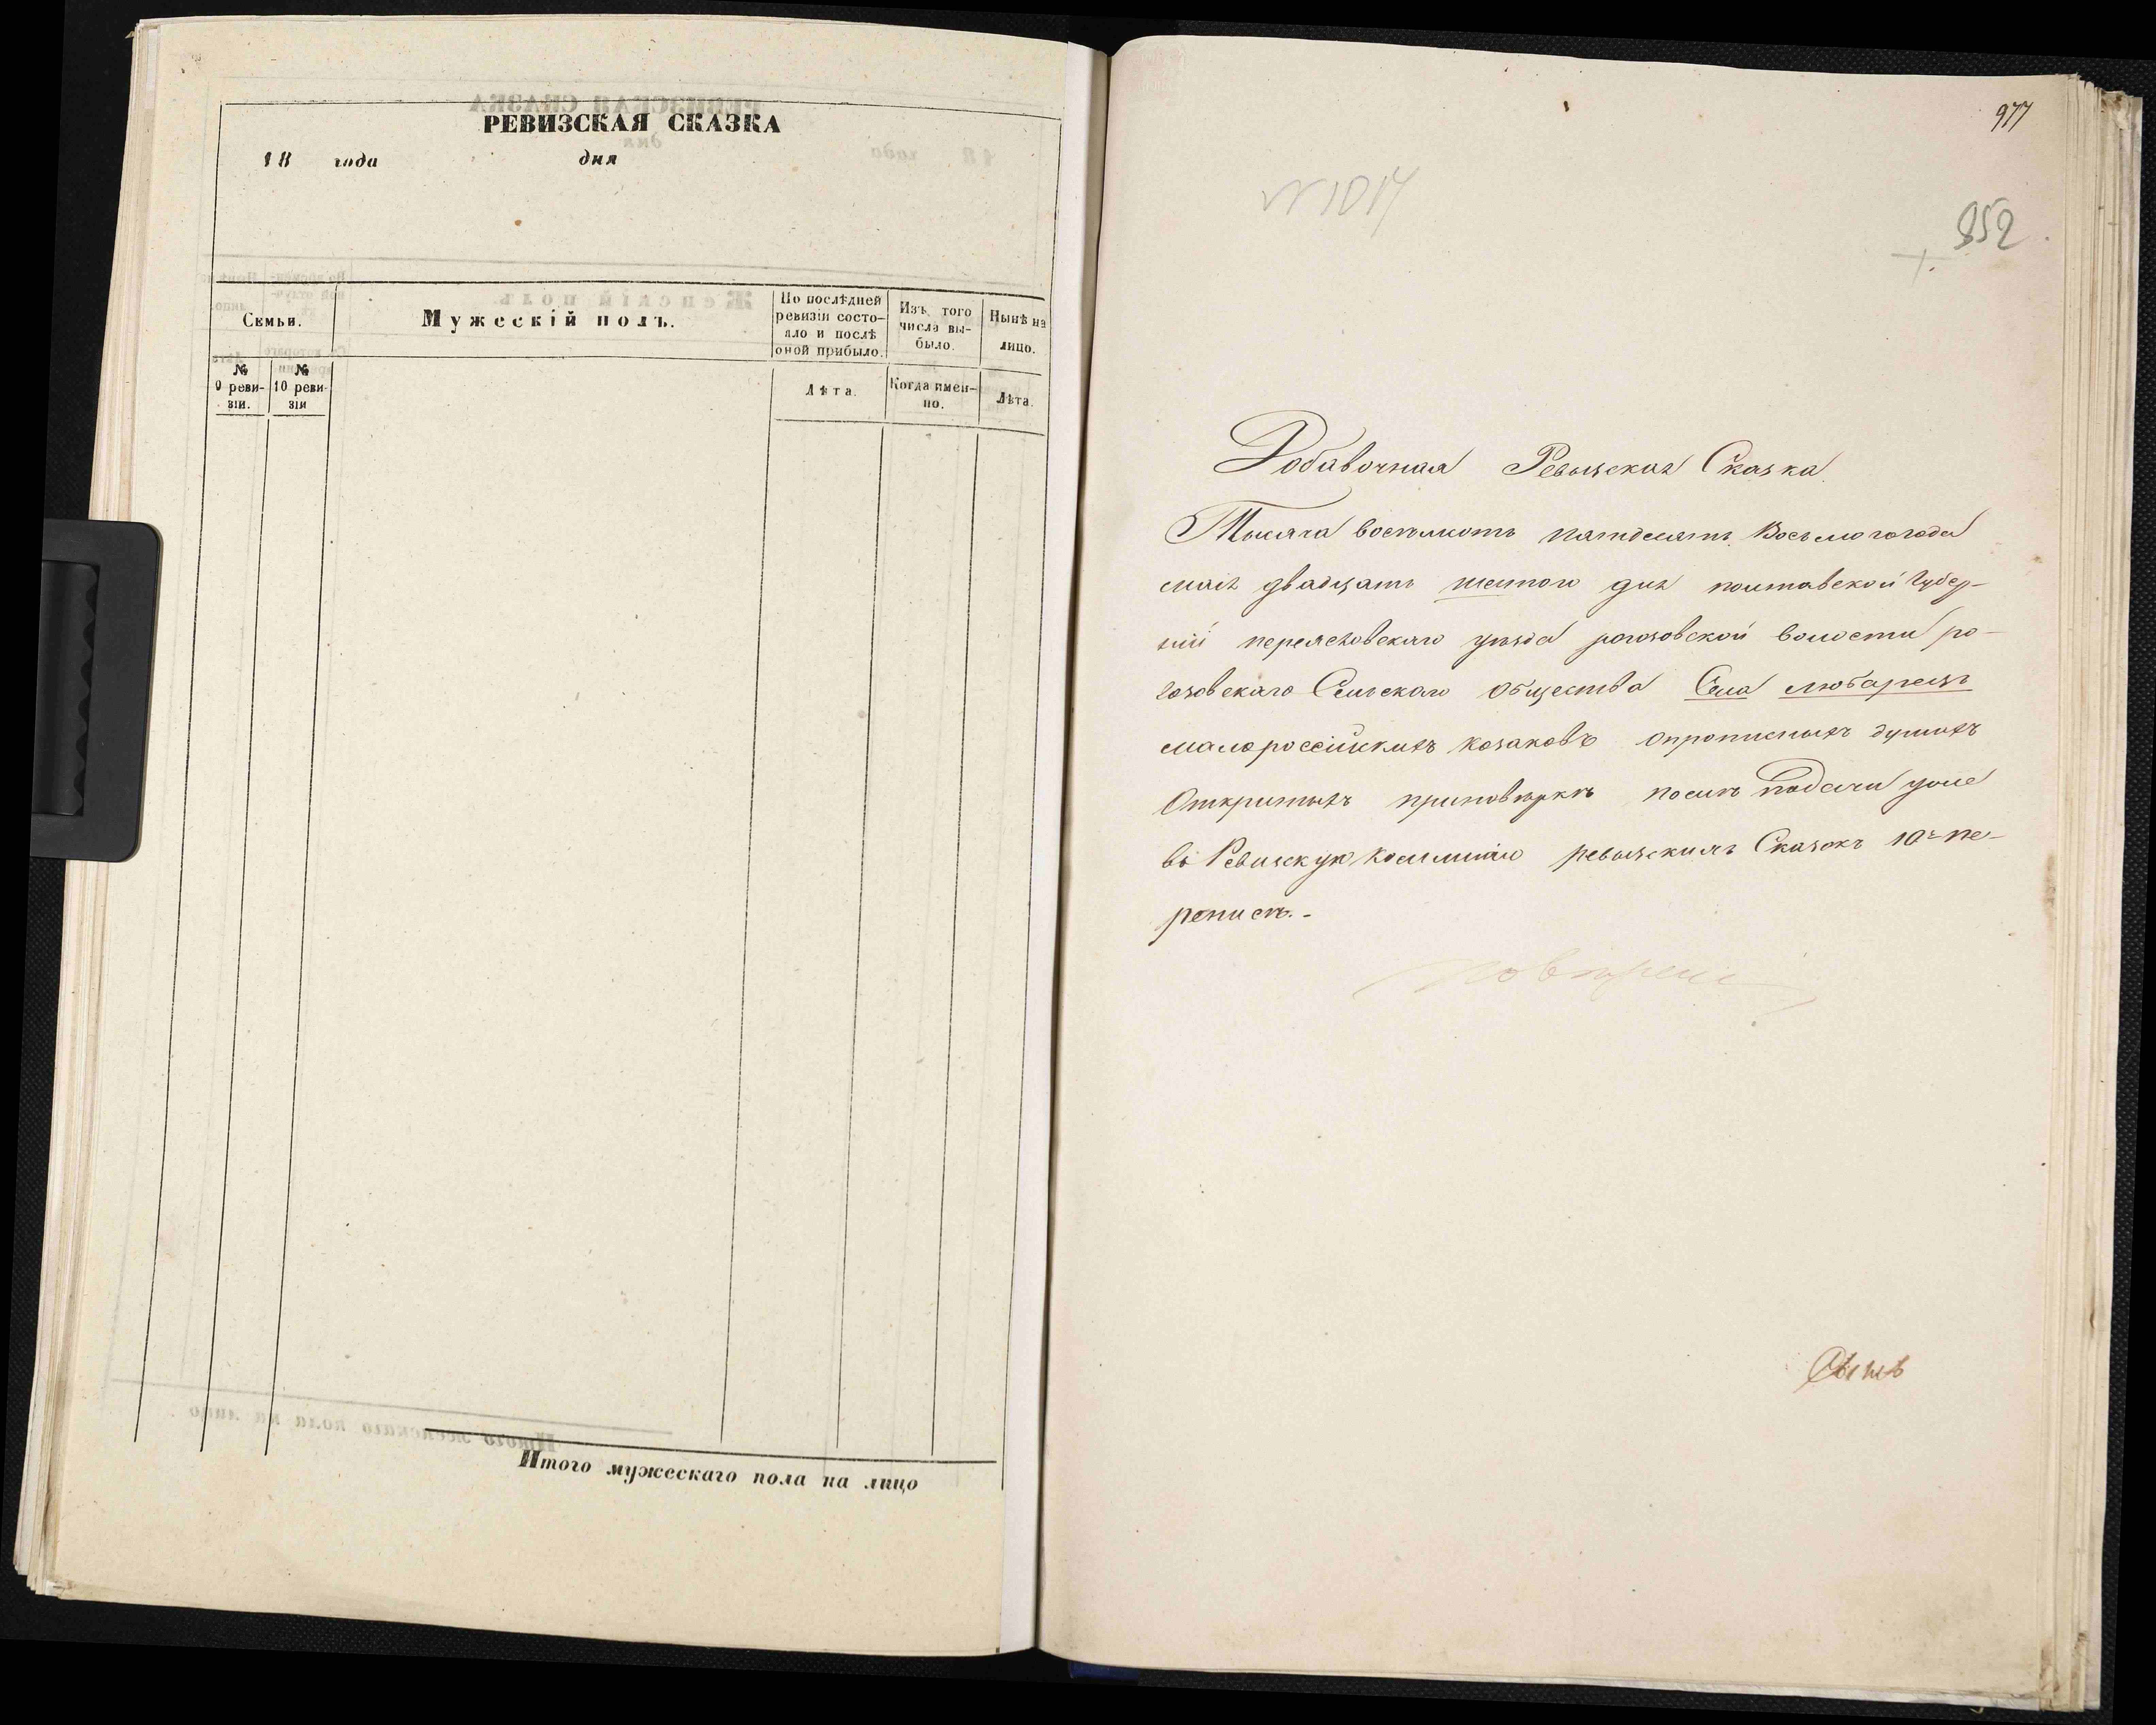 РЕВИЗСКАЯ СКАЗКА
18 года дня
Семьи.
Мужескій полъ.
По послѣдней ревизіи состо-
яло и послѣ
оной прибыло.
Изъ того
числа вы-
было.
Нынѣ на
лицо.
№
9 реви-
зіи.
№
10 реви-
зіи
Лѣта.
Когда имен-
но.
Лѣта.
Итого мужескаго пола на лицо
977
№ 1017
852
Добавочная Ревызская Сказка.
Тысяча восемьсотъ пятдесятъ Восьмого года
мая двадцать шестого дня полтавской Губер-
ніи переясловскаго уѣзда рогозовской волости ро-
гозовскаго Сельскаго Общества Села любарецъ
малороссійскихъ козаковъ опрописныхъ душахъ
Открытыхъ приповѣркѣ послѣ подачи уже
въ Ревизскую Коммисію ревызскихъ Сказокъ 10й пе-
реписѣ.-